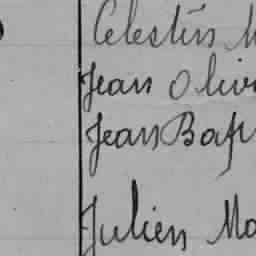 Celestin M
Jean Oliv
Jean Bap
Julien Ma